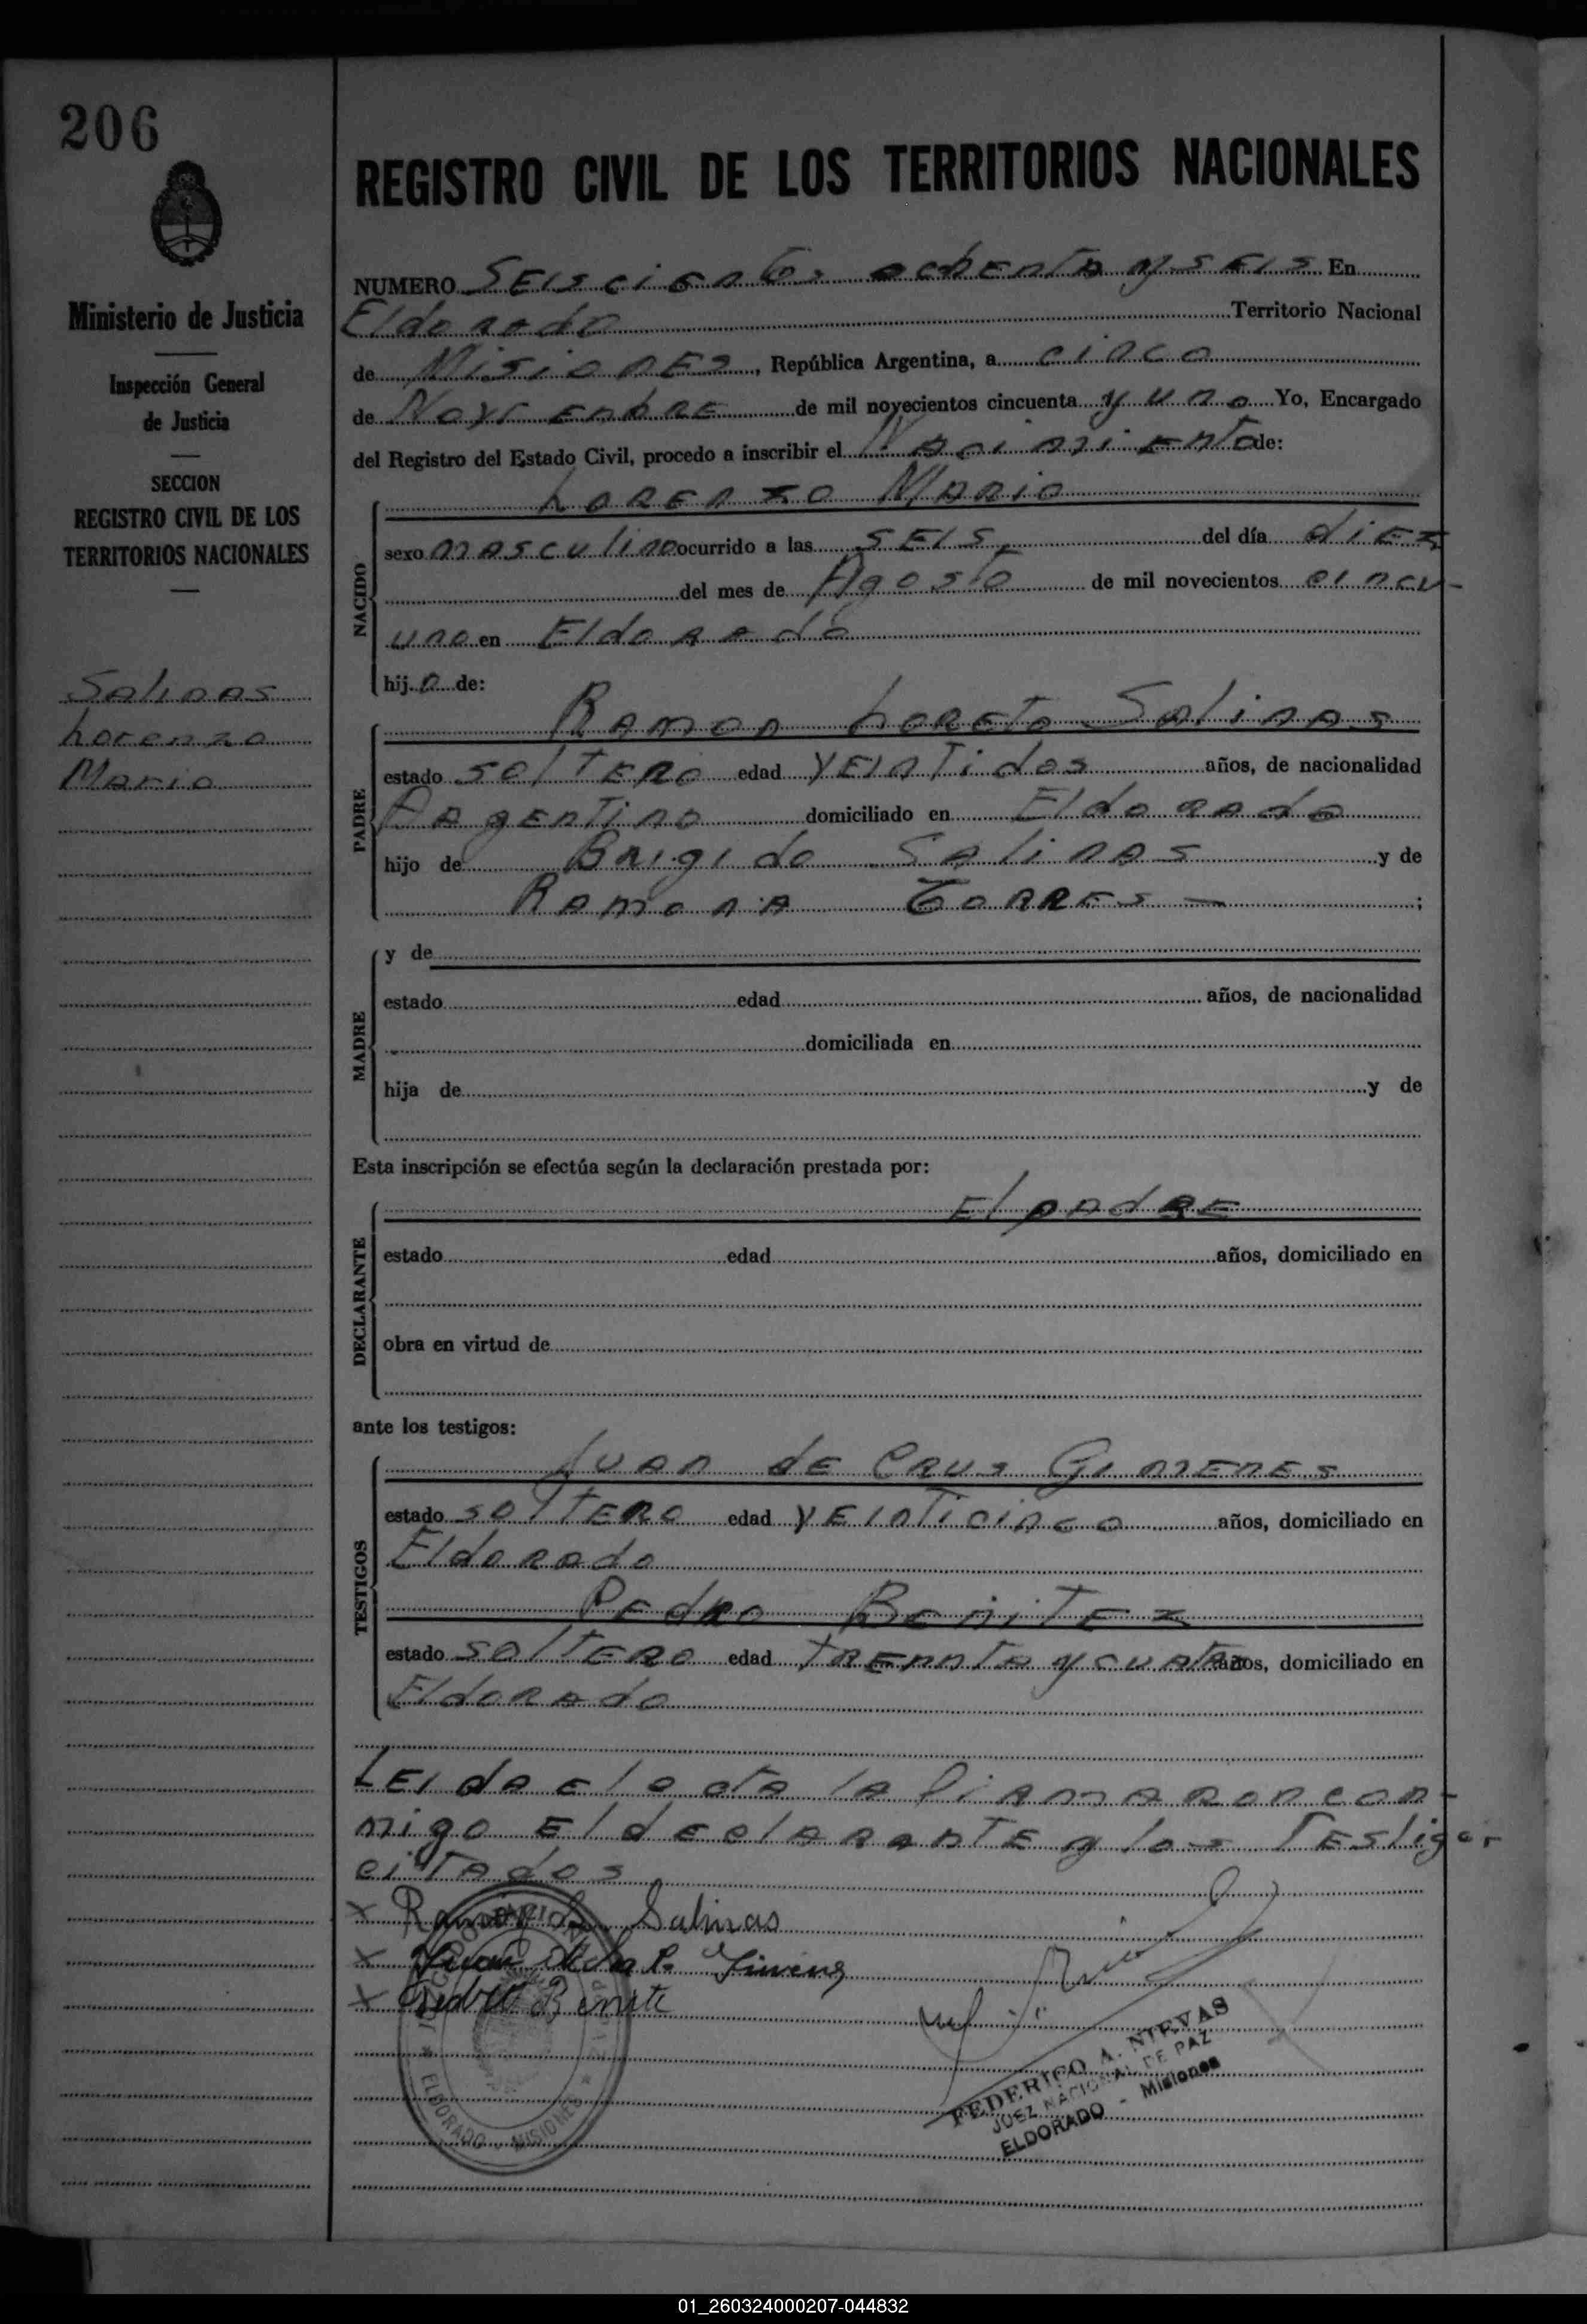 206
REGISTRO CIVIL DE LOS TERRITORIOS NACIONALES
Ministerio de Justicia
Inspección General
de Justicia
SECCION
REGISTRO CIVIL DE LOS
TERRITORIOS NACIONALES
Salinas
Lorenzo
Mario
NUMERO Seiscientos ochenta y seis En
Eldorado Territorio Nacional
de Misiones, República Argentina, a cinco
de Noviembre de mil novecientos cincuenta y uno Yo, Encargado
del Registro del Estado Civil, procedo a inscribir el Nacimiento de:
NACIDO
Lorenzo Mario
sexo masculino ocurrido a las seis del día diez
del mes de Agosto de mil novecientos cincu-
uno en Eldorado
hijo de:
PADRE
Ramon Loreto Salinas
estado soltero edad veintidos años, de nacionalidad
Argentino domiciliado en Eldorado
hijo de Brigido Salinas y de
Ramona Torres — ;
MADRE
y de
estado edad años, de nacionalidad
domiciliada en
hija de y de
Esta inscripción se efectúa según la declaración prestada por:
DECLARANTE
El padre
estado edad años, domiciliado en
obra en virtud de
ante los testigos:
TESTIGOS
Juan de Crus Gimenes
estado soltero edad veinticinco años, domiciliado en
Eldorado
Pedro Benitez
estado soltero edad treinta y cuatro años, domiciliado en
Eldorado
Leida el acta la firmaron con-
migo El declarante y los Testigos
citados
x Ramon L. Salinas
x Juan
x Pedro Benite
ELDORADO - MISIONES
FEDERICO A. NIEVAS
JUEZ NACIONAL DE PAZ
ELDORADO - Misiones
01_260324000207-044832